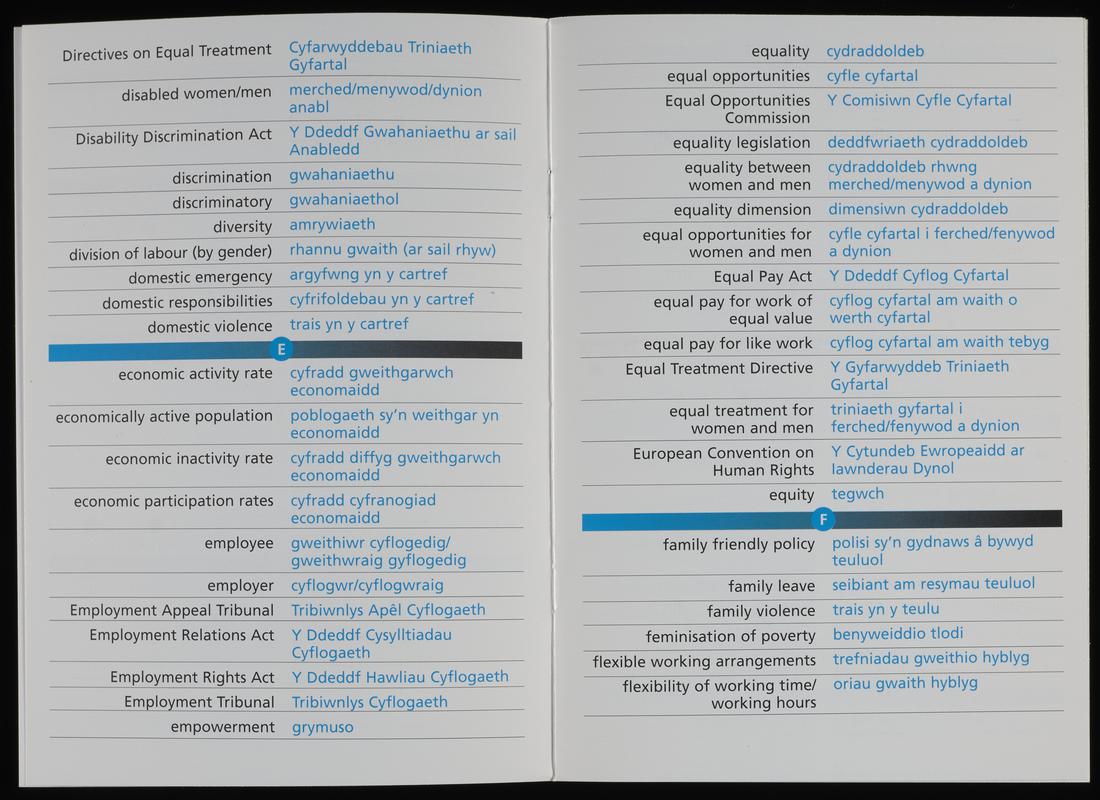 Directives on Equal Treatment Cyfarwyddebau Triniaeth
Gyfartal
disabled women/men merched/menywod/dynion
anabl
Disability Discrimination Act Y Ddeddf Gwahaniaethu ar sail
Anabledd
discrimination gwahaniaethu
discriminatory gwahaniaethol
diversity amrywiaeth
division of labour (by gender) rhannu gwaith (ar sail rhyw)
domestic emergency argyfwng yn y cartref
domestic responsibilities cyfrifoldebau yn y cartref
domestic violence trais yn y cartref
E
economic activity rate cyfradd gweithgarwch
economaidd
economically active population poblogaeth sy'n weithgar yn
economaidd
economic inactivity rate cyfradd diffyg gweithgarwch
economaidd
economic participation rates cyfradd cyfranogiad
economaidd
employee gweithiwr cyflogedig/
gweithwraig gyflogedig
employer cyflogwr/cyflogwraig
Employment Appeal Tribunal Tribiwnlys Apêl Cyflogaeth
Employment Relations Act Y Ddeddf Cysylltiadau
Cyflogaeth
Employment Rights Act Y Ddeddf Hawliau Cyflogaeth
Employment Tribunal Tribiwnlys Cyflogaeth
empowerment grymuso
equality cydraddoldeb
equal opportunities cyfle cyfartal
Equal Opportunities Y Comisiwn Cyfle Cyfartal
Commission
equality legislation deddfwriaeth cydraddoldeb
equality between cydraddoldeb rhwng
women and men merched/menywod a dynion
equality dimension dimensiwn cydraddoldeb
equal opportunities for cyfle cyfartal i ferched/fenywod
women and men a dynion
Equal Pay Act Y Ddeddf Cyflog Cyfartal
equal pay for work of cyflog cyfartal am waith o
equal value werth cyfartal
equal pay for like work cyflog cyfartal am waith tebyg
Equal Treatment Directive Y Gyfarwyddeb Triniaeth
Gyfartal
equal treatment for triniaeth gyfartal i
women and men ferched/fenywod a dynion
European Convention on Y Cytundeb Ewropeaidd ar
Human Rights Iawnderau Dynol
equity tegwch
F
family friendly policy polisi sy'n gydnaws â bywyd
teuluol
family leave seibiant am resymau teuluol
family violence trais yn y teulu
feminisation of poverty benyweiddio tlodi
flexible working arrangements trefniadau gweithio hyblyg
flexibility of working time/ oriau gwaith hyblyg
working hours